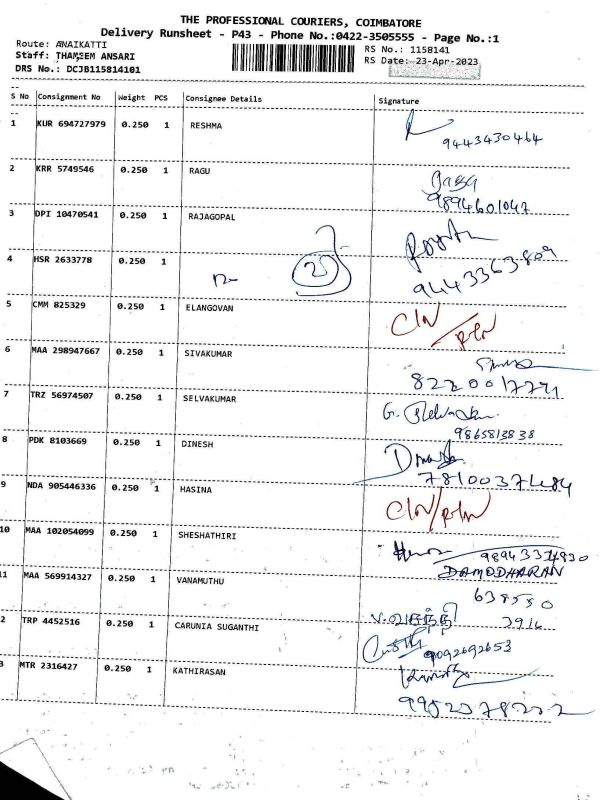 THE PROFESSIONAL COURIERS, COIMBATORE
Delivery Runsheet - P43 - Phone No.:0422-3505555 - Page No.:1
Route: ANAIKATTI RS No.: 1158141
Staff: THAMEEM ANSARI RS Date: 23-Apr-2023
DRS No.: DCJB115814101
S No Consignment No Weight PCS Consignee Details Signature
1 KUR 694727979 0.250 1 RESHMA
9443430464
2 KRR 5749546 0.250 1 RAGU
9894601047
3 DPI 10470541 0.250 1 RAJAGOPAL
4 HSR 2633778 0.250 1
9443363809
5 CMM 825329 0.250 1 ELANGOVAN
6 MAA 298947667 0.250 1 SIVAKUMAR
7 TRZ 56974507 0.250 1 SELVAKUMAR G. Selvakumar
9865813838
8 PDK 8103669 0.250 1 DINESH
9 NDA 905446336 0.250 1 HASINA
10 MAA 102054099 0.250 1 SHESHATHIRI
DAMODHARAN
11 MAA 569914327 0.250 1 VANAMUTHU
638550
3916
2 TRP 4452516 0.250 1 CARUNIA SUGANTHI V. வசந்தி
9092692653
3 MTR 2316427 0.250 1 KATHIRASAN